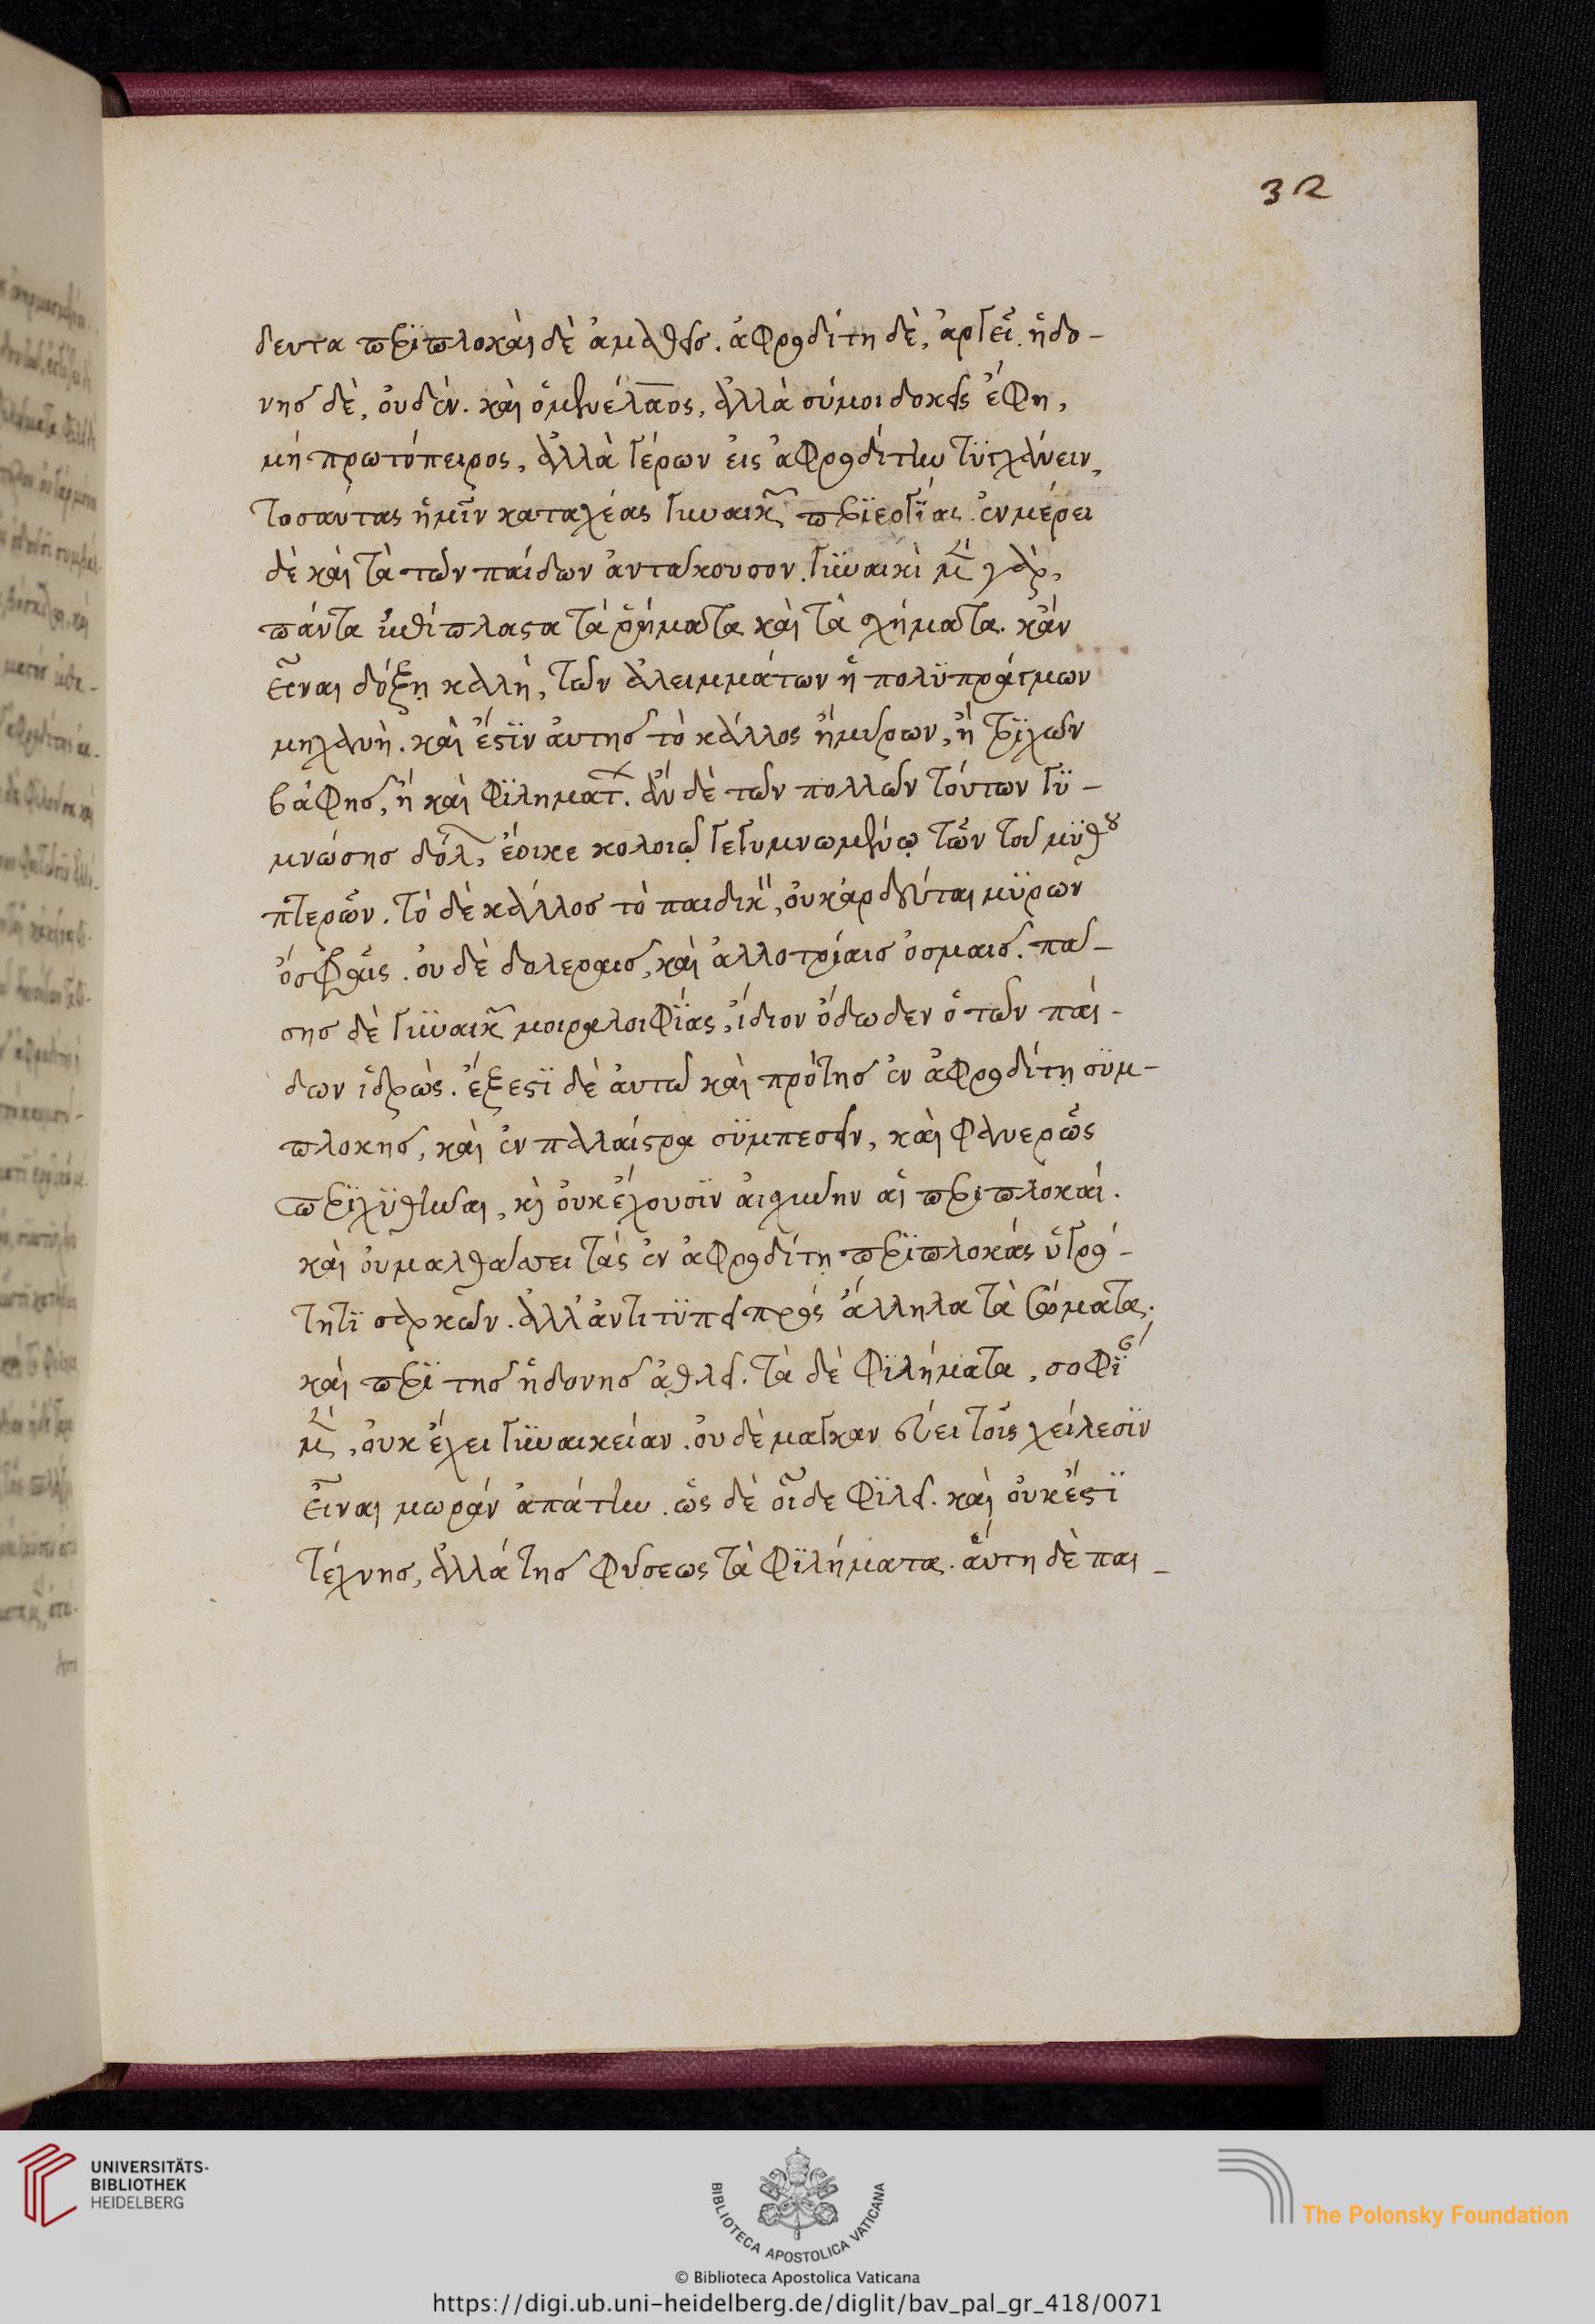 32
δευτα περιπλοκαὶ δὲ ἀμαλθεῖς. ἀφροδίτη δὲ, ἀργεῖ. ἡδο-
νῆς δὲ, οὐδέν. καὶ ὁ μενέλαος, ἀλλὰ σύ μοι δοκεῖς ἔφη,
μὴ πρωτόπειρος, ἀλλὰ γέρων εἰς ἀφροδίτην τυγχάνειν,
τοσαύτας ἡμῖν καταχέας γυναικῶν περιεργίας. ἐν μέρει
δὲ καὶ τὰ τῶν παίδων ἀντάκουσον. γυναικὶ μὲν γὰρ,
πάντα ἐπίπλαστα τὰ ῥήματα καὶ τὰ σχήματα. κἂν
εἶναι δόξῃ καλὴ, τῶν ἀλειμμάτων ἡ πολυπράγμων
μηχανή. καὶ ἔστιν αὐτῆς τὸ κάλλος ἢ μύρων, ἢ τριχῶν
βαφῆς, ἢ καὶ φιλημάτων. ἂν δὲ τῶν πολλῶν τούτων γυ-
μνώσῃς δόλων, ἔοικε κολοιῷ γεγυμνωμένῳ τῶν τοῦ μύθου
πτερῶν. τὸ δὲ κάλλος τὸ παιδικὸν, οὐκ ἀρδεύεται μύρων
ὀσφραῖς. οὐδὲ δολεραῖς, καὶ ἀλλοτρίαις ὀσμαῖς. πά-
σης δὲ γυναικῶν μοιραλοιφίας, ἥδιον ὄδωδεν ὁ τῶν παί-
δων ἱδρώς. ἔξεστι δὲ αὐτῷ καὶ πρὸ τῆς ἐν ἀφροδίτῃ συμ-
πλοκῆς, καὶ ἐν παλαίστρᾳ συμπεσεῖν, καὶ φανερῶς
περιχυθῆναι, καὶ οὐκ ἔχουσιν αἰσχύνην αἱ περιπλοκαί.
καὶ οὐ μαλθάσσει τὰς ἐν ἀφροδίτῃ περιπλοκὰς ὑγρό-
τητι σαρκῶν. ἀλλ' ἀντιτυπεῖ πρὸς ἄλληλα τὰ σώματα.
καὶ περὶ τῆς ἡδονῆς ἀθλεῖ. τὰ δὲ φιλήματα, σοφίαν
μὲν, οὐκ ἔχει γυναικείαν. οὐδὲ μαγγαν εύει τοῖς χείλεσιν
εἶναι μωρὰν ἀπάτην. ὡς δὲ οἶδε φιλεῖ. καὶ οὐκ ἔστι
τέχνης, ἀλλὰ τῆς φύσεως τὰ φιλήματα. αὕτη δὲ παι-
UNIVERSITÄTS-
BIBLIOTHEK
HEIDELBERG
BIBLIOTECA APOSTOLICA VATICANA
The Polonsky Foundation
© Biblioteca Apostolica Vaticana
https://digi.ub.uni-heidelberg.de/diglit/bav_pal_gr_418/0071